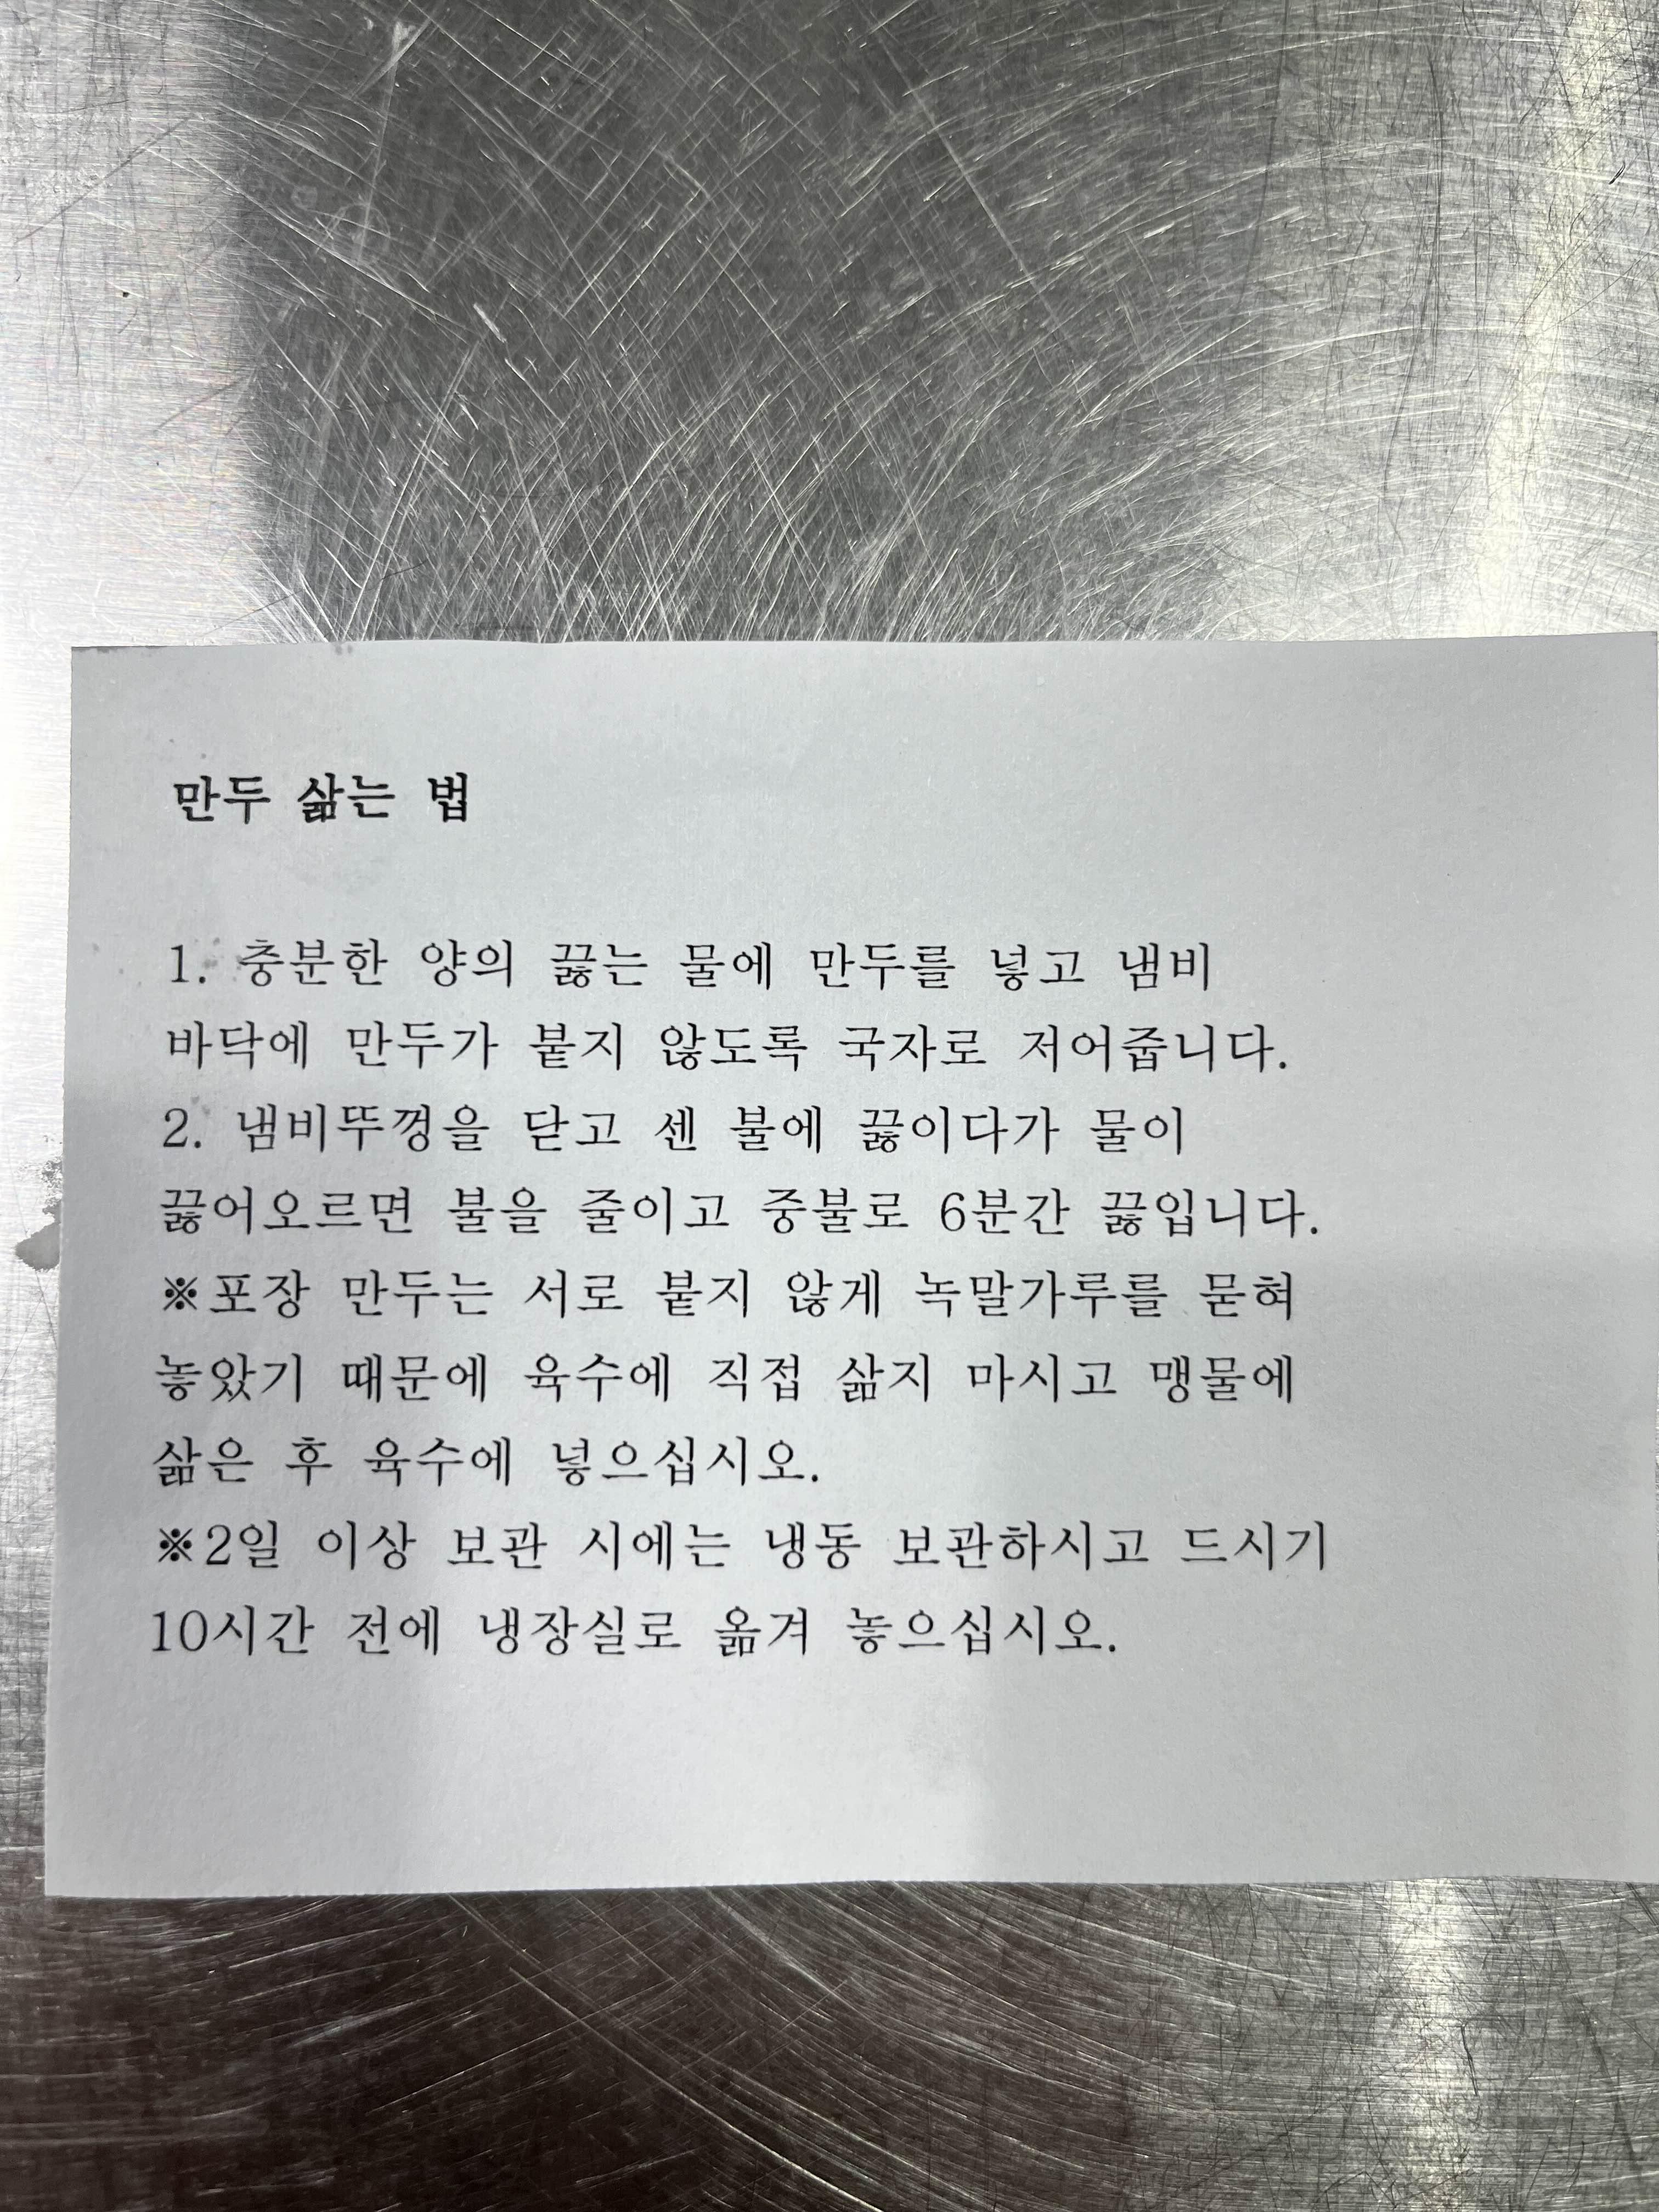 만두 삶는 법
1. 충분한 양의 끓는 물에 만두를 넣고 냄비
바닥에 만두가 붙지 않도록 국자로 저어줍니다.
2. 냄비뚜껑을 닫고 센 불에 끓이다가 물이
끓어오르면 불을 줄이고 중불로 6분간 끓입니다.
※포장 만두는 서로 붙지 않게 녹말가루를 묻혀
놓았기 때문에 육수에 직접 삶지 마시고 맹물에
삶은 후 육수에 넣으십시오.
※2일 이상 보관 시에는 냉동 보관하시고 드시기
10시간 전에 냉장실로 옮겨 놓으십시오.